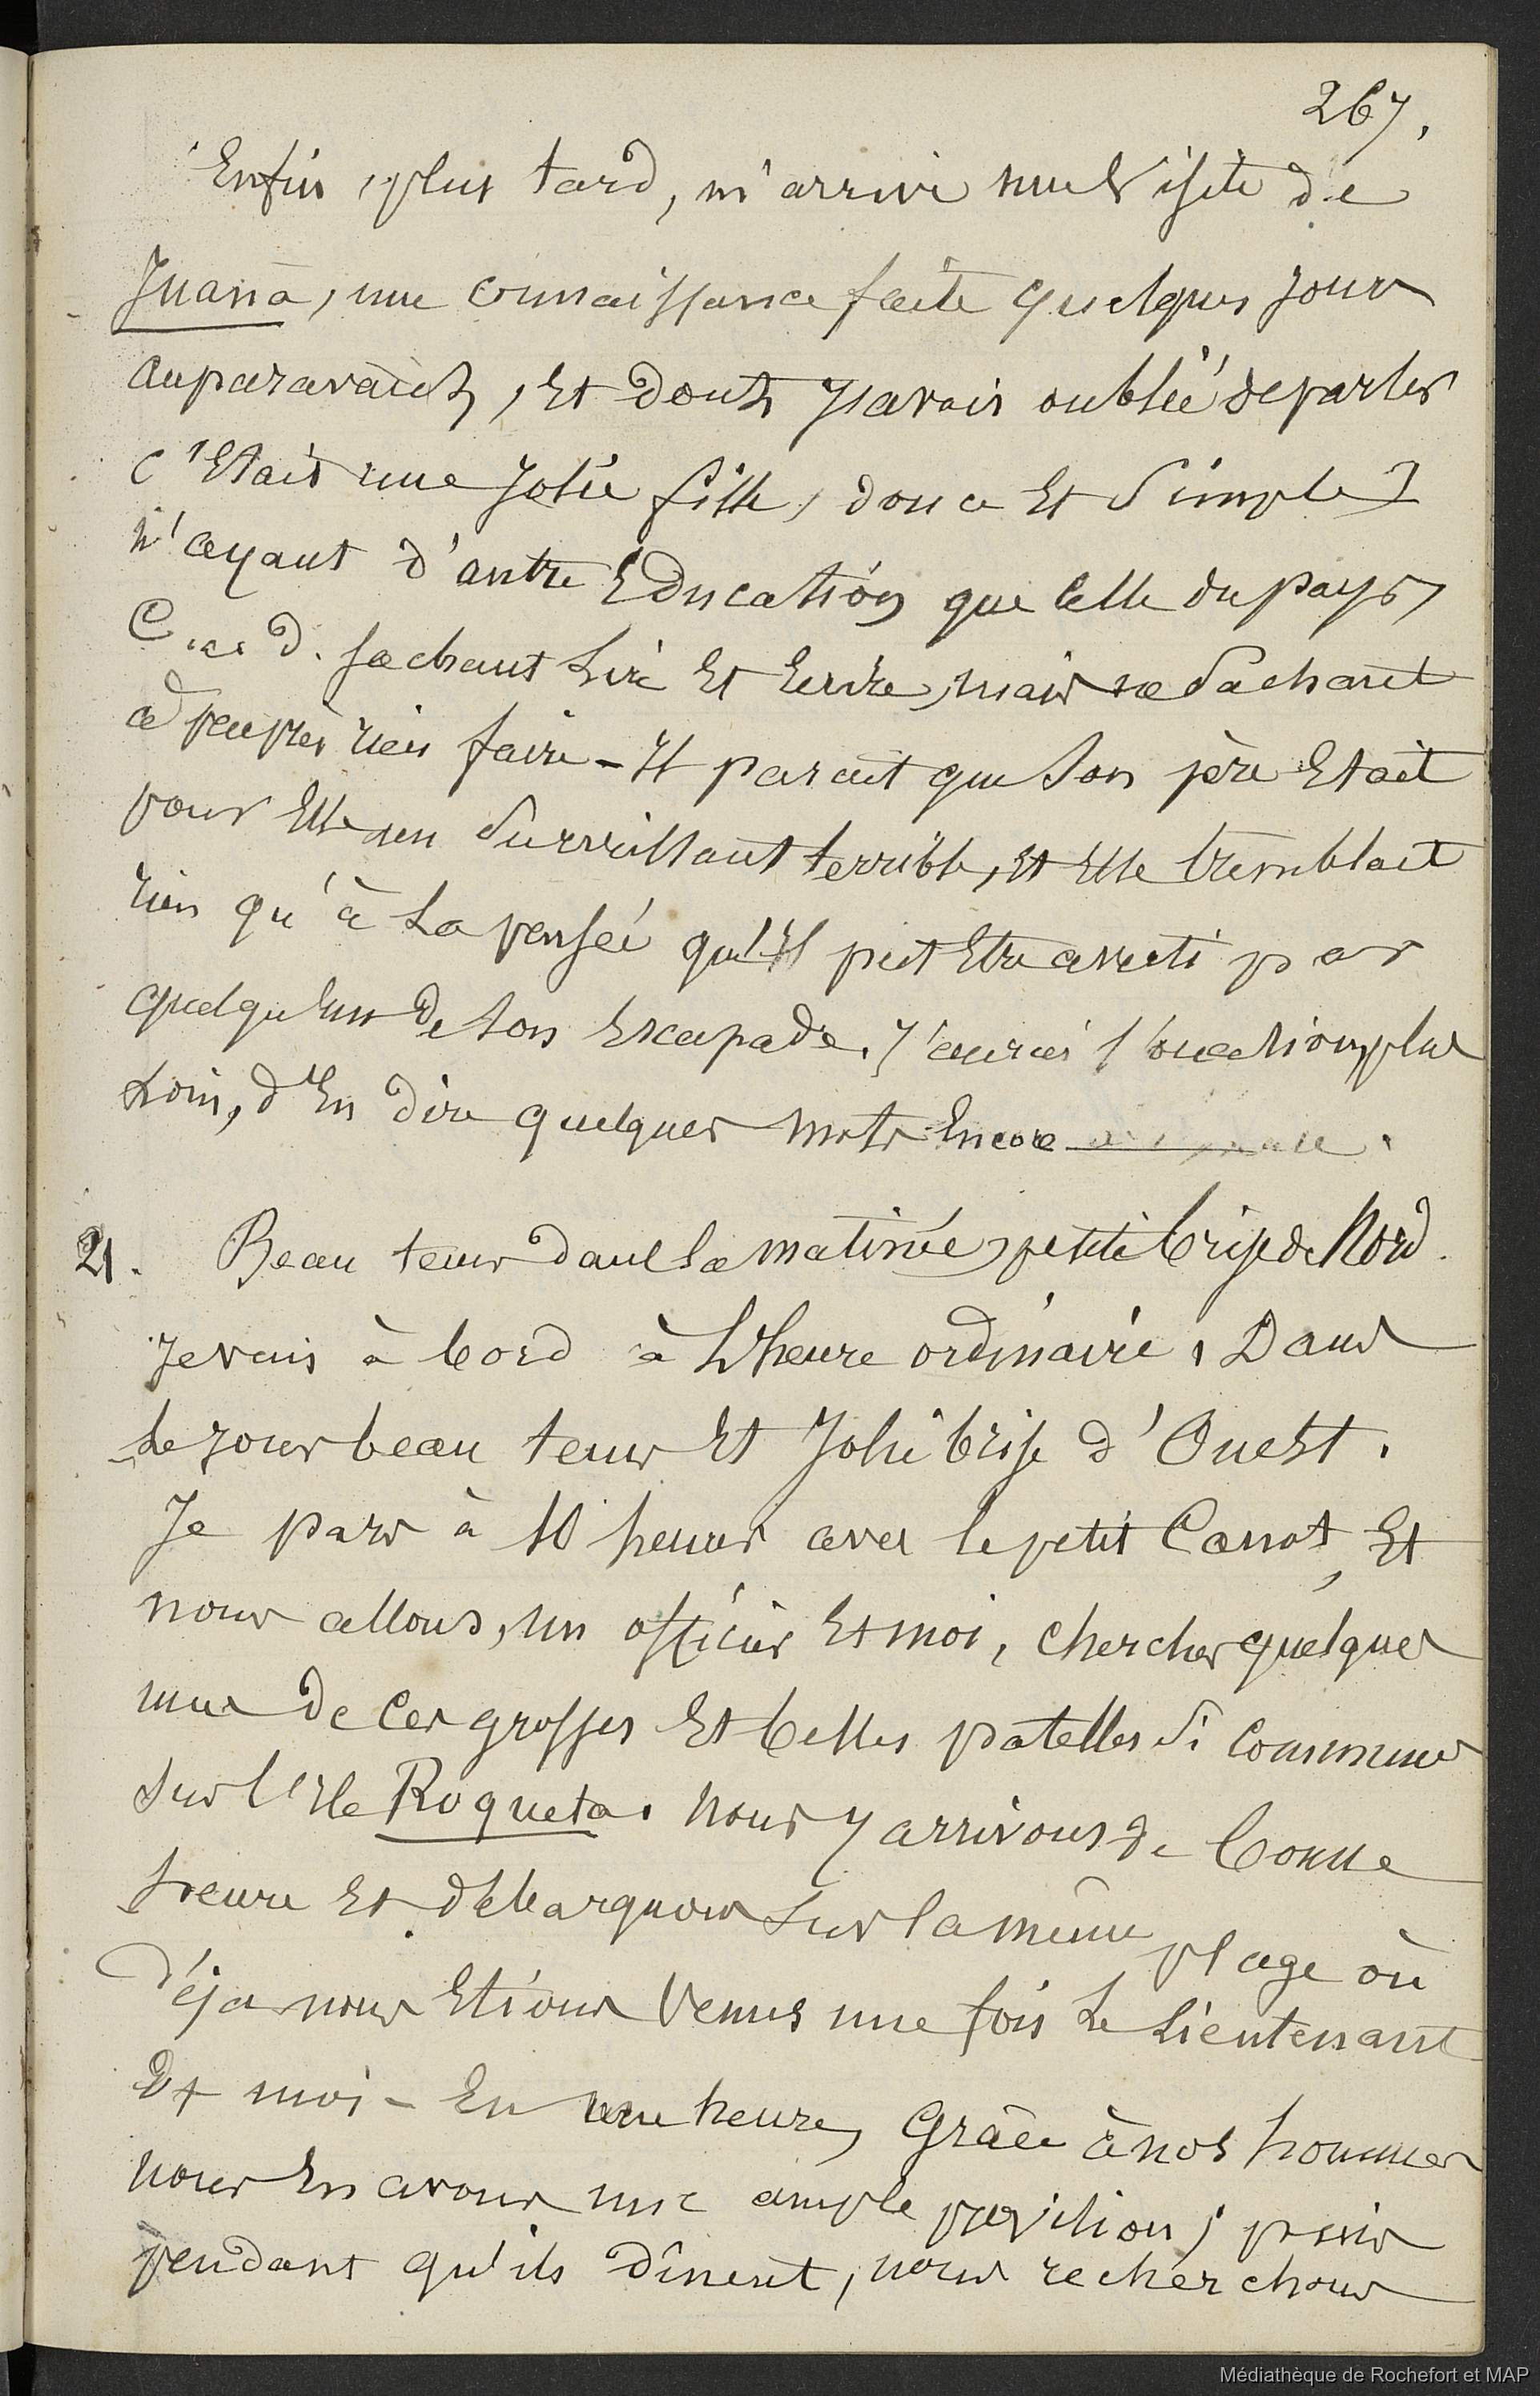 267.
Enfin, plus tard, m'arrive une visite de
Juana, une connaissance faite quelques jours
auparavant, et dont j'avais oublié de parler
c'était une jolie fille, douce et simple
n'ayant d'autre éducation que celle du pays,
C. a. d. sachant lire et écrire, mais ne sachant
à peu près rien faire - Il parait que son père était
pour elle un surveillant terrible, et elle tremblait
rien qu'à la pensée qu'il put être averti par
quelqu'un de son escapade. J'aurai l'occasion, plus
loin, d'en dire quelques mots encore
21. Beau tems dans la matinée, petite brise de Nord.
Je vais à bord à l'heure ordinaire. Dans
le jour beau tems et jolie brise d'Ouest.
Je pars à 10 heures avec le petit Canot, et
nous allons, un officier et moi, chercher quelques
unes de ces grosses et belles patelles si communes
sur l'Ile Roqueta. Nous y arrivons de bonne
heure et débarquons sur la même plage où
déja nous étions venus une fois le Lieutenant
et moi - En une heure, grâce à nos hommes
nous en avons une ample provision; puis
pendant qu'ils dînent, nous recherchons
Médiathèque de Rochefort et MAP